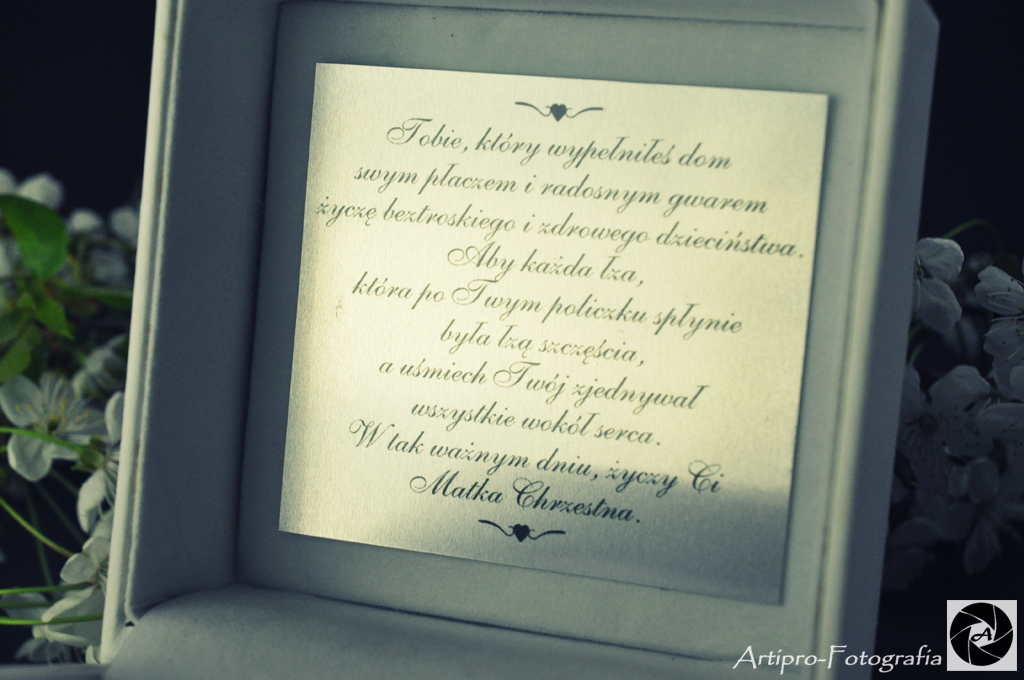 Tobie, który wypełniłeś dom
swym płaczem i radosnym gwarem
życzę beztroskiego i zdrowego dzieciństwa.
Aby każda łza,
która po Twym policzku spłynie
była łzą szczęścia,
a uśmiech Twój zjednywał
wszystkie wokół serca.
W tak ważnym dniu, życzy Ci
Matka Chrzestna.
Artipro-Fotografia
A